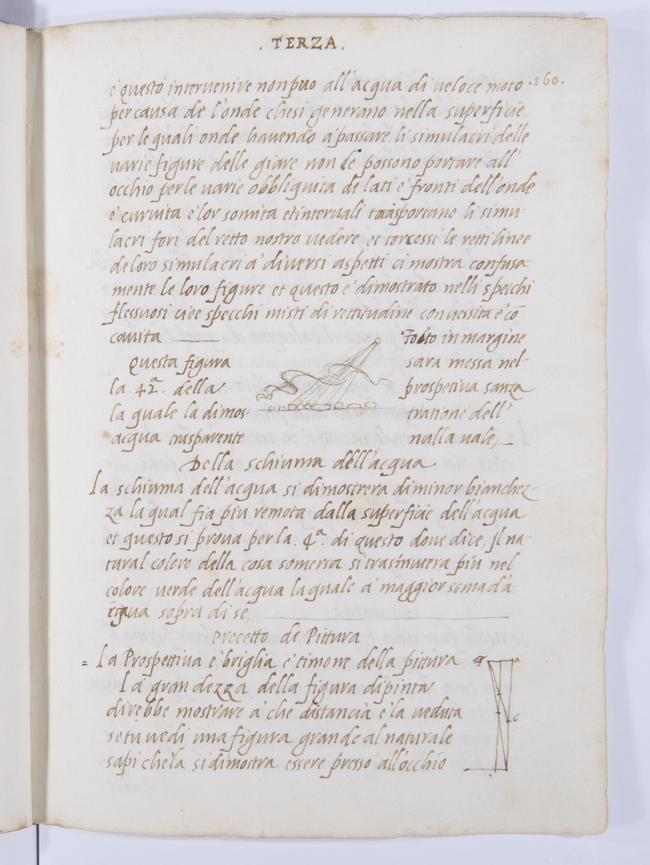 . TERZA .
.160.
è questo intervenire non puo all'acqua di veloce moto
per causa de l'onde che si generano nella superficie
per le quali onde havendo a passare li simulacri delle
varie figure delle giare non se possono portare all'
occhio per le varie obbliquita de lati e' fronti dell'onde
e' curvita e' lor somita et intervali trasportano li simu
lacri fori del retto nostro vedere et torcessi le retti linee
de loro simulacri a' diversi aspetti ci mostra confusa
mente le loro figure et questo e' dimostrato nelli specchi
flessuosi cioe specchi misti di rettitudine convessita e' cō
cavita
questa figura
la .4ª. della
la quale la dimos
acqua trasparente
Tolto in margine
sara messa nel
prospetiva sanza
tratione dell'
nulla vale,
Della schiuma dell'acqua
La schiuma dell'acqua si dimostrera di minor bianchez-
za la qual fia piu remota dalla superficie dell'acqua
et questo si prova per la .4ª. di questo dove dice, Il na-
tural colore della cosa somersa si trasmutera piu nel
colore verde dell'acqua la quale a' maggior soma d'a
cqua sopra di se,
Precetto de Pittura
= La Prospettiva e' briglia e' timone della pittura
La grandezza della figura dipinta
direbbe mostrare a' che distancia e' la veduta
se tu vedi una figura grande al naturale
sapi che la si dimostra essere presso all'occhio
a
c